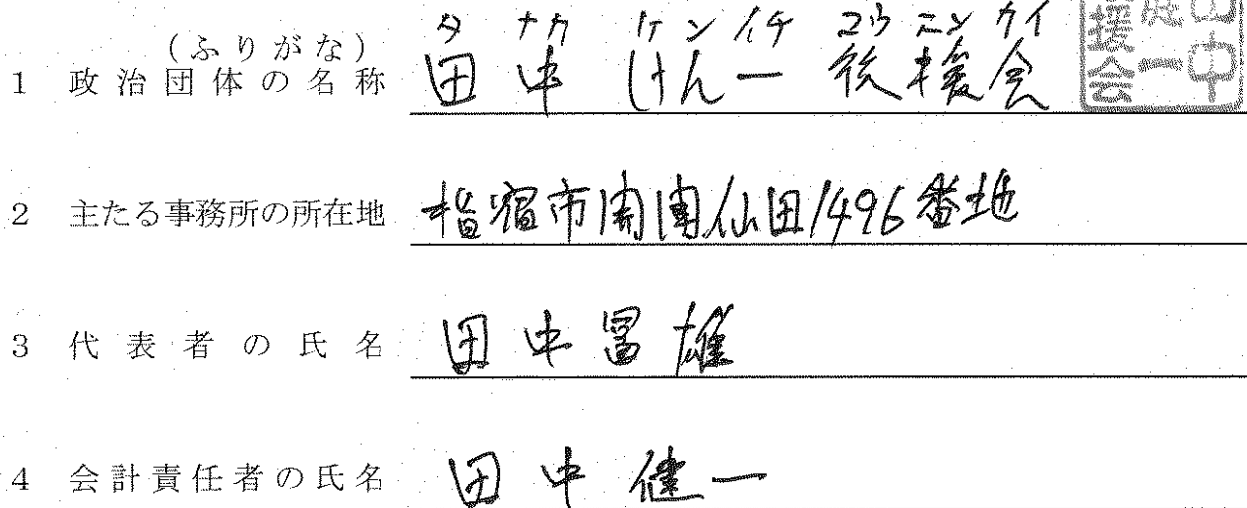 (ふりがな) タナカ ケンイチ コウエンカイ
1 政治団体の名称 田中けん一後援会
2 主たる事務所の所在地 指宿市開聞仙田1496番地
3 代表者の氏名 田中冨雄
4 会計責任者の氏名 田中健一